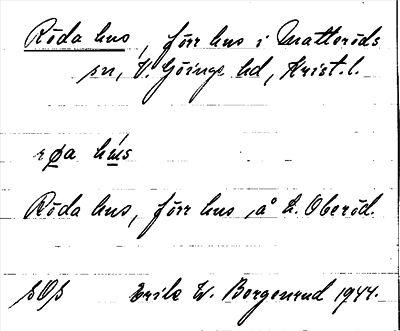 Röda hus, förr hus i Matteröds
sn, V. Göinge hd, Krist. l.
røa hus
Röda hus, förr hus, å L. Oberöd.
sOs Erik W. Borgenrud 1944.